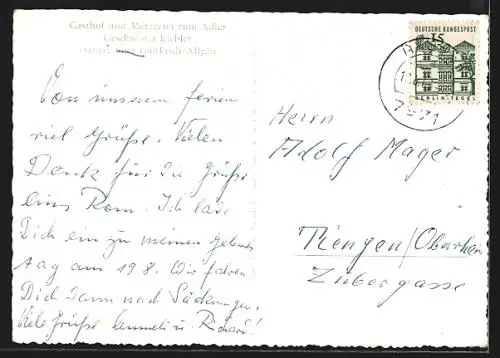 Gasthof und Metzgerei zum Adler
Geschwister Kiebler
Leutkirch/Allgäu
Von unserem ferien
viel Grüße. Vielen
Dank für die Grüße
aus Rom. Ich lade
Dich ein zu meinen Geburts
tag am 19 8. Wir fahren
Dich dann nach Säckingen.
Viele Grüße Annneli u. Richard!
DEUTSCHE BUNDESPOST
15
BERLIN-TEGEL
7971
Herrn
Adolf Mager
Tiengen/Oberrhein
Zubergasse